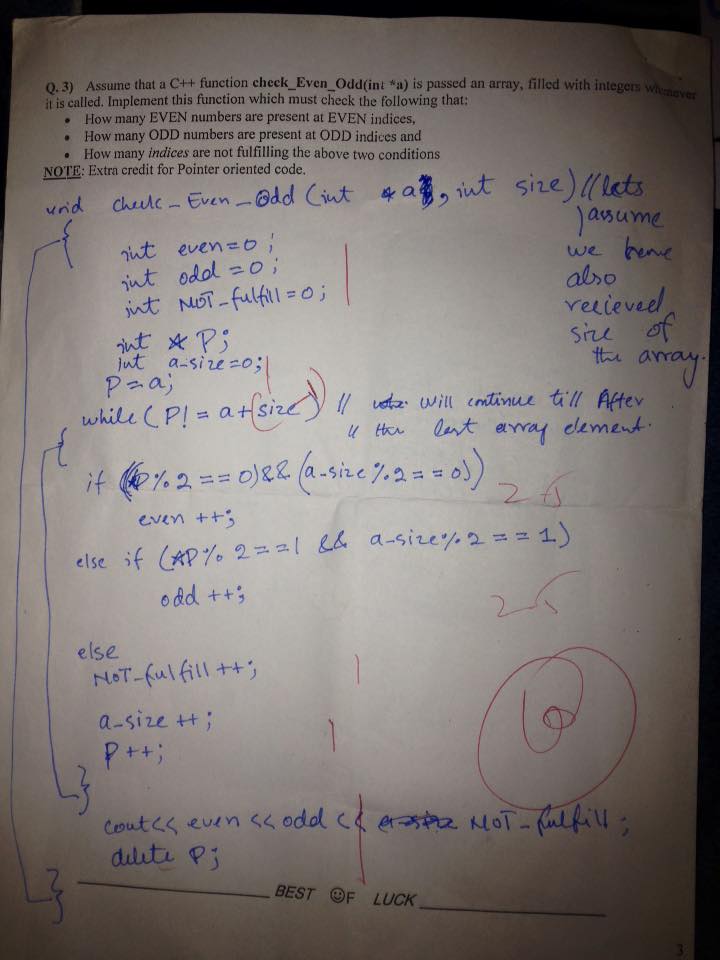 Q. 3) Assume that a C++ function check_Even_Odd(int *a) is passed an array, filled with integers whenever
it is called. Implement this function which must check the following that:
• How many EVEN numbers are present at EVEN indices,
• How many ODD numbers are present at ODD indices and
• How many indices are not fulfilling the above two conditions
NOTE: Extra credit for Pointer oriented code.
void check_Even_Odd (int *a, int size) // lets
assume
we have
also
recieved
size of
the array.
{
int even=0;
int odd =0;
int NOT_fulfill=0;
int * P;
int a-size=0;
P=a;
while (P! = a+size) // will continue till After
// the last array element.
{
if ((*P%2==0)&&(a-size%2==0))
even ++;
else if (*P%2==1 && a-size%2==1)
odd ++;
else
NOT-fulfill ++;
a-size ++;
P++;
}
cout<< even << odd << NOT-fulfill;
delete P;
}
BEST OF LUCK
3